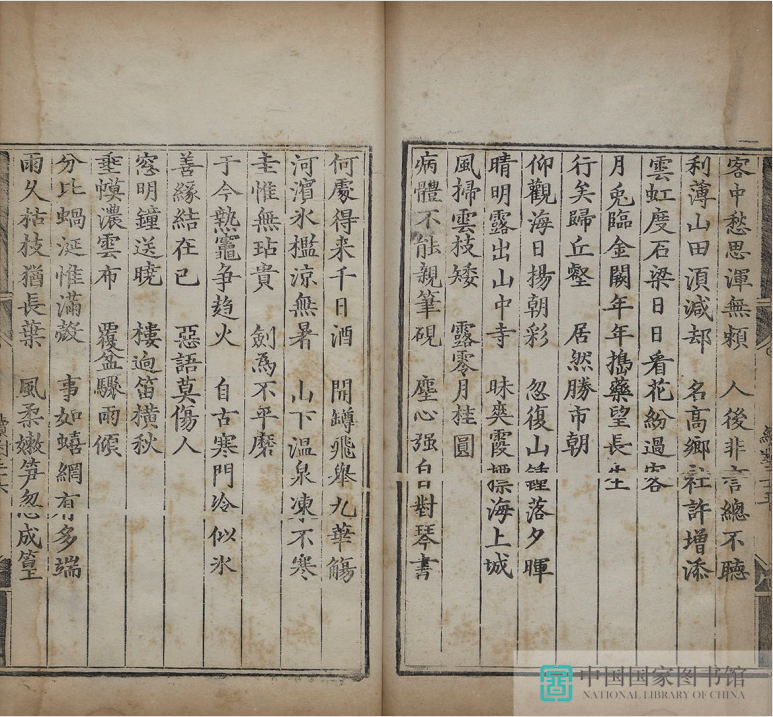 客中愁思渾無頼　人後非言總不聴
利薄山田湏減却　名高鄉社許增添
雲虹度石梁日日看花紛過客
月兎臨金闕年年搗藥望長生
行矣歸丘壑　居然勝市朝
仰觀海日揚朝彩　忽復山鍾落夕暉
晴明露出山中寺　昧爽霞標海上城
風掃雲枝矮　露零月桂圓
病體不能親筆硯　塵心强自對琴書
何處得来千日酒　開罇飛舉九華觴
河濱氷檻涼無暑　山下溫泉凍不寒
圭惟無玷貴　劍為不平磨
于今熱竈爭趋火　自古寒門冷似氷
善緣結在已　惡語莫傷人
窓明鐘送曉　樓逈笛橫秋
垂幙濃雲布　覆盆驟雨傾
分比蝸涎惟滿殼　事如蟢網有多端
雨久枯枝猶長葉　風柔嫩笋忽成篁
中国国家图书馆
NATIONAL LIBRARY OF CHINA